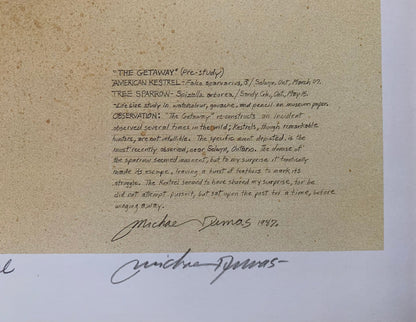 "THE GETAWAY" (Pre-study)
AMERICAN KESTREL - Falco sparverius, ♂/ Selwyn, Ont, March, 07.
TREE SPARROW - Spizella arborea / Sandy Ck., Ont, May 15.
Life size study in watercolour, gouache, and pencil on museum paper.
OBSERVATION: "The Getaway" reconstructs an incident
observed several times in the wild; Kestrels, though remarkable
hunters, are not infallible. The specific event depicted, is the
most recently observed, near Selwyn, Ontario. The demise of
the sparrow seemed imminent, but to my surprise it frantically
made its escape, leaving a burst of feathers to mark its
struggle. The Kestrel seemed to have shared my surprise, for he
did not attempt pursuit, but sat upon the post for a time, before
winging away.
Michael Dumas 1987.
Michael Dumas